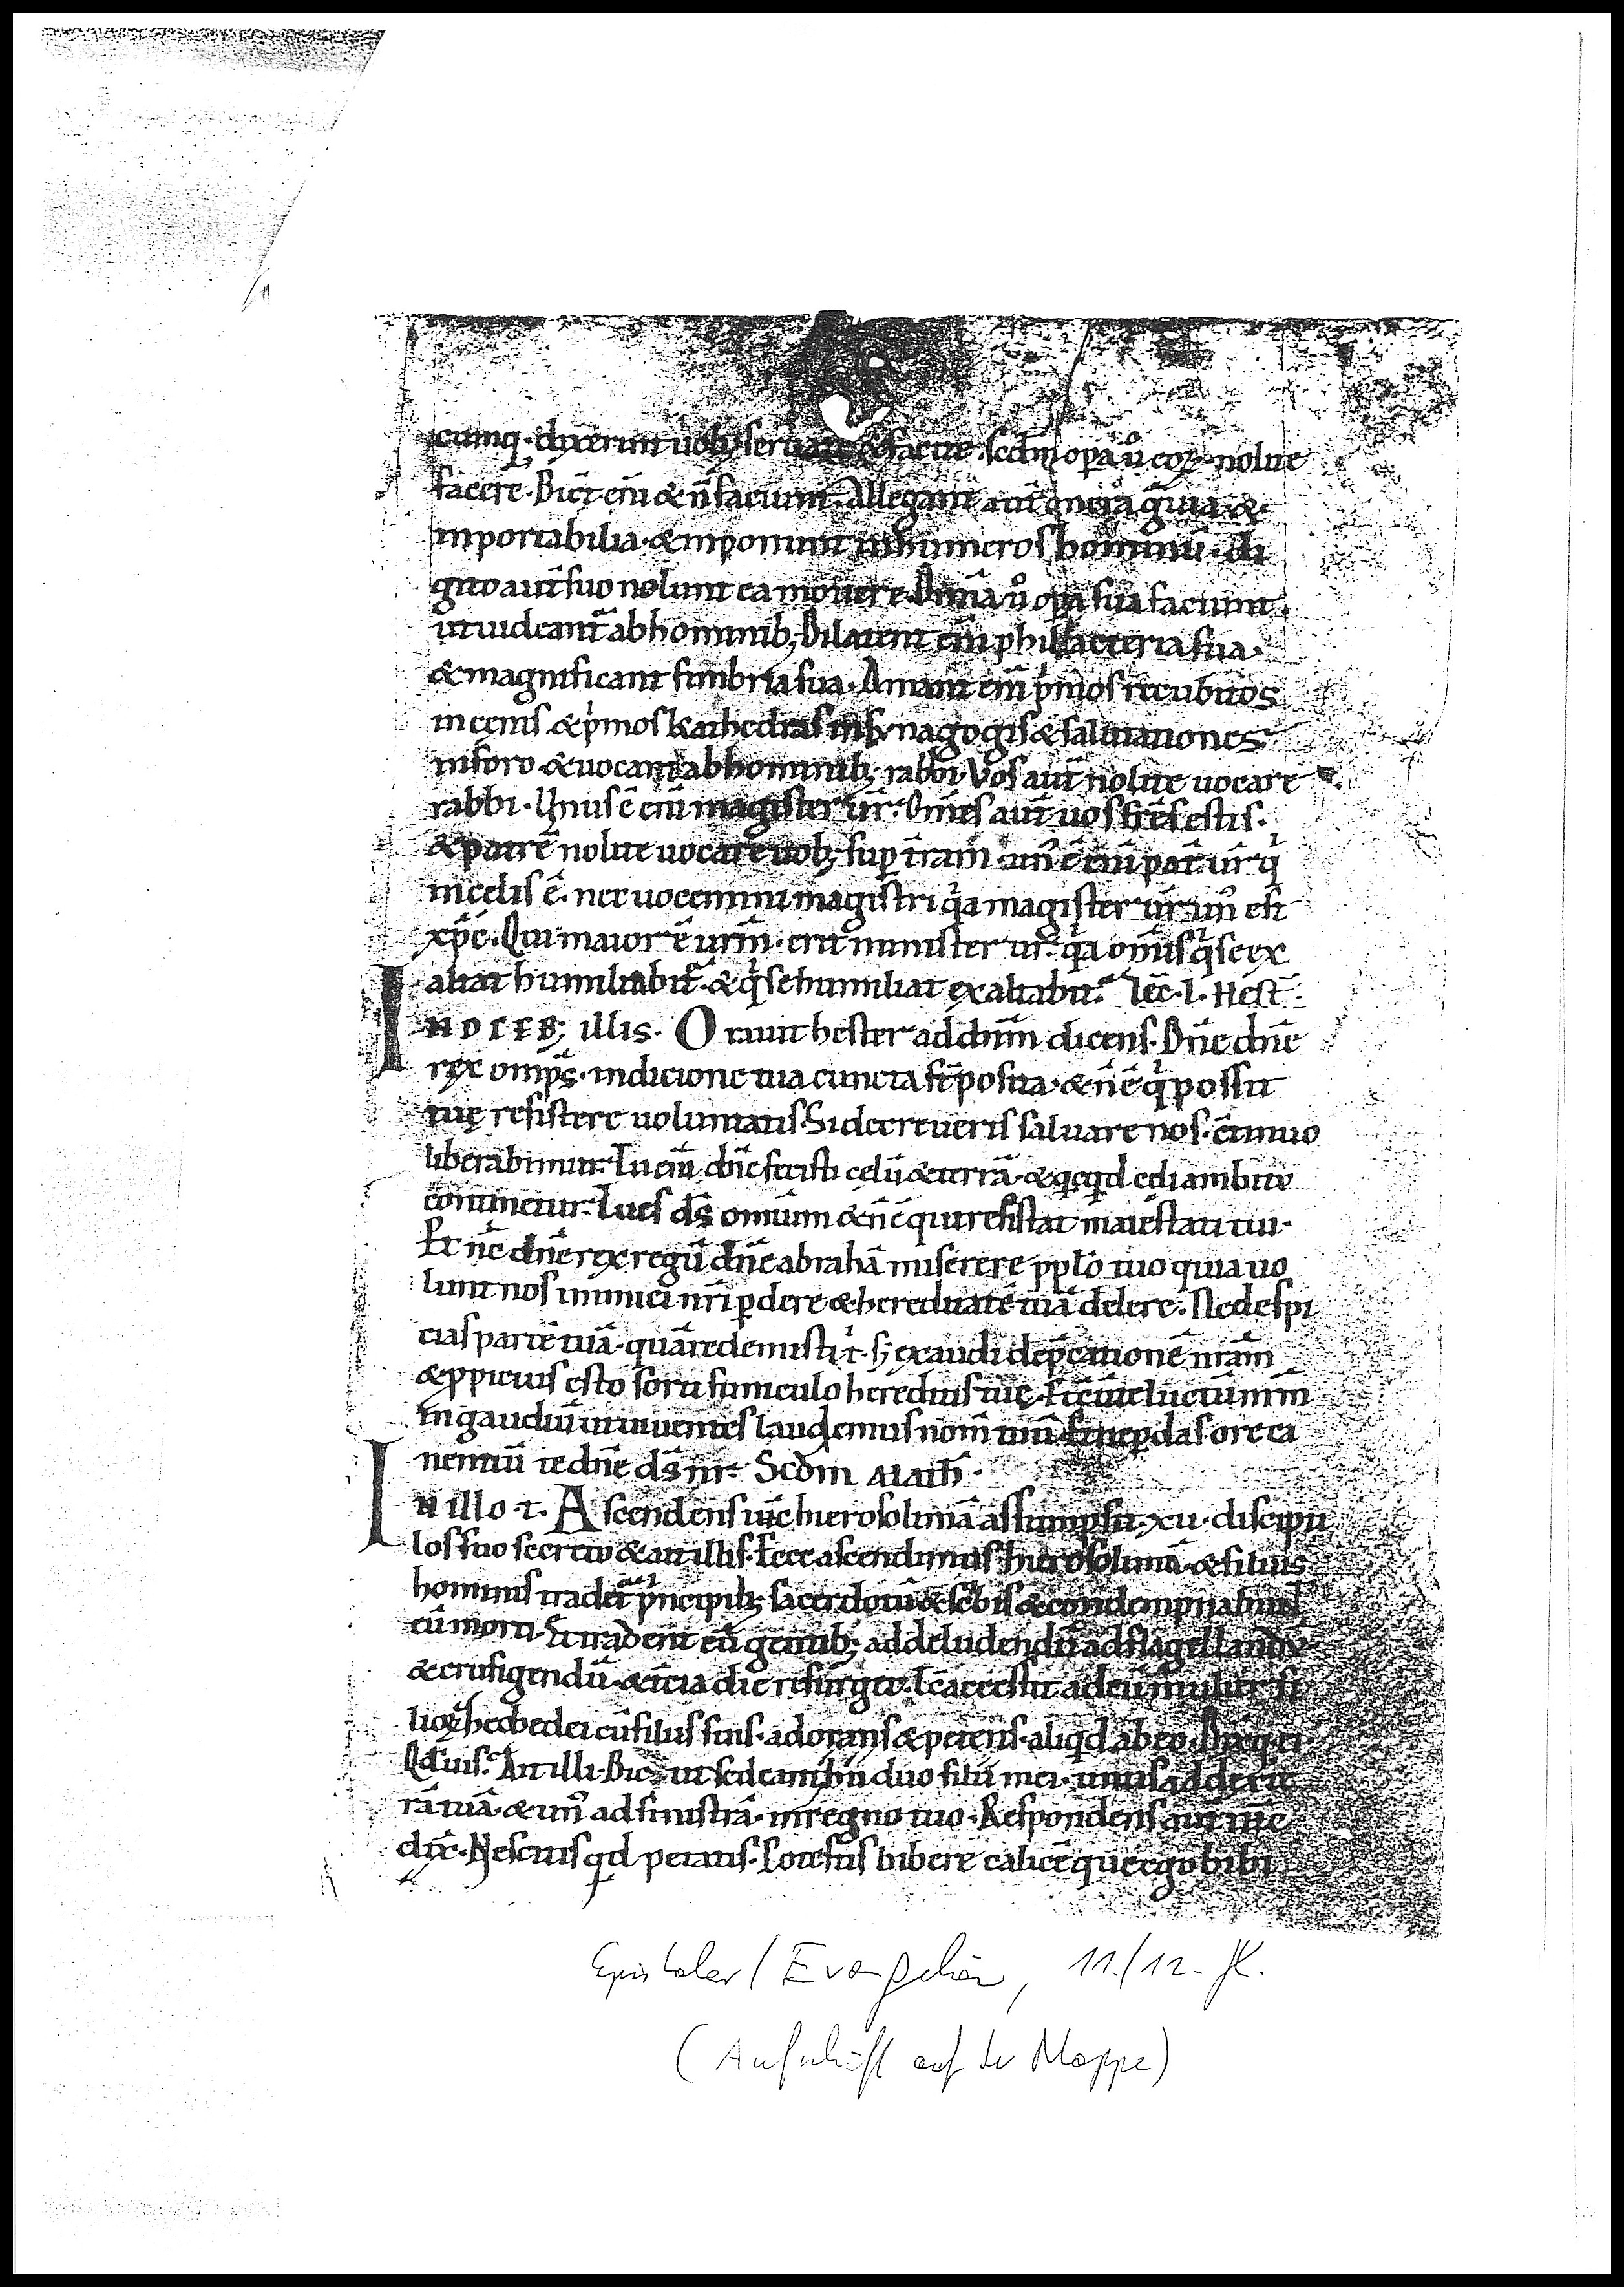 cumq;· dixerint uob; seruate & facite. scdm opa ũ eoꝝ nolite
facere. Dict eni & n̄ faciunt. Allegant aut̄ onera gͣuia. &
inportabilia. & inponunt in humeros hominū. di
gito aut̄ suo nolunt ea mouere. Omīa ũ opa sua faciunt.
ut uideant̄ ab hominib; Dilatent eni philacteria sua.
& magnificant fimbria sua. Amant eni pͥmos recubitos
in cenis. & pͥmos kathedras in synagogis & salutationes
in foro. & uocari ab hominib; rabbi. Vos aut̄ nolite uocare
rabbi. Unus ē eni magister ur̄. Om̄es aut̄ uos fr̄es estis.
& patrē nolite uocare uob; sup̄ tram̄ un̄ ē eni pat̄ ur̄ qͥ
in celis ē. nec uocemini magistri qͥa magister ur̄ un᷒ est
xp̄c. Qui maior ē urm̄. erit minister ur̄. qͥa omīs qͥ se ex
altat humiliabit᷑. & qͥ se humiliat exaltabit᷑. Lec̄. l. Hest̄.
IN DIEB; illis. Orauit hester ad dn̄m dicens. Dn̄e dn̄e
rex omp̄s. in dicione tua cuncta st̄ posita. & n̄ ē qͥ possit
tuę resistere uoluntatis. Si decreueris saluare nos. c̄tinuo
liberabimur. Tu eni dn̄e fecisti celū & terrā. & qͥcqͥd celi ambitu
continetur. Tu es ds̄ omnium & n̄ ē qui resistat maiestati tui.
Et nc̄ dn̄e rex regū dn̄e abrahā miserere pplo tuo quia uo
lunt nos inimici nr̄i pdere & hereditatē tuā delere. Ne despi
cias partē tuā. quā redemisti t̄. s; exaudi dep̄cationē meām
& ppicius esto sorti funiculo hereditis tuę. & c̄uerte luctū nrm̄
in gaudiū ut uiuentes laudemus nom̄ tuū & ne pdas ore ca
nentiū te dn̄e ds̄ nr̄. Scdm Math̄.
IN illo t. Ascendens ihc̄ hierosolimā assumpsit. xii. discipu
los suo secreto & ait illis. Ecce ascendimus hierosolimā. & filius
hominis tradet᷑ pͥncipib; sacerdotū & scͥbis & condempnabunt
eū morti. & tradent eū gentib; ad deludendū ad flagellandū
& crusigendū. & t̄cia die resurget. Tc̄ accessit ad eū mulier fi
lioꝝ hezebedei cū filiis suis. adorans & petens. aliqͥd ab eo. Dixq; ei
Qd uis? Ait illi. Dic. ut sedeant hii duo filii mei. unus ad dexte
rā tuā. & un᷒ ad sinistrā. in regno tuo. Respondens aut̄ ihc̄
dix̄. Nescitis qͥd petatis. Potestis bibere calicē que ego bibi
Epistolar / Evangeliar, 11./12. Jh.
(Aufschrift auf der Mappe)